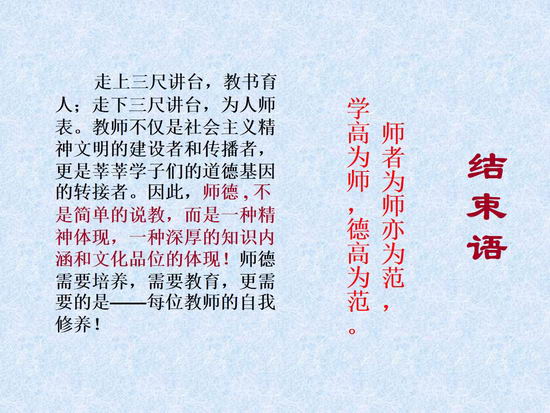 结束语
师者为师亦为范，
学高为师，德高为范。
走上三尺讲台，教书育
人；走下三尺讲台，为人师
表。教师不仅是社会主义精
神文明的建设者和传播者，
更是莘莘学子们的道德基因
的转接者。因此，师德,不
是简单的说教，而是一种精
神体现，一种深厚的知识内
涵和文化品位的体现！师德
需要培养，需要教育，更需
要的是——每位教师的自我
修养！